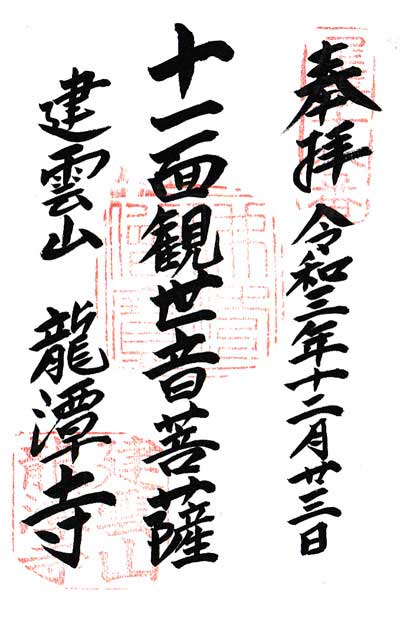 奉拝 令和三年十二月廿三日
十一面観世音菩薩
建雲山 龍潭寺